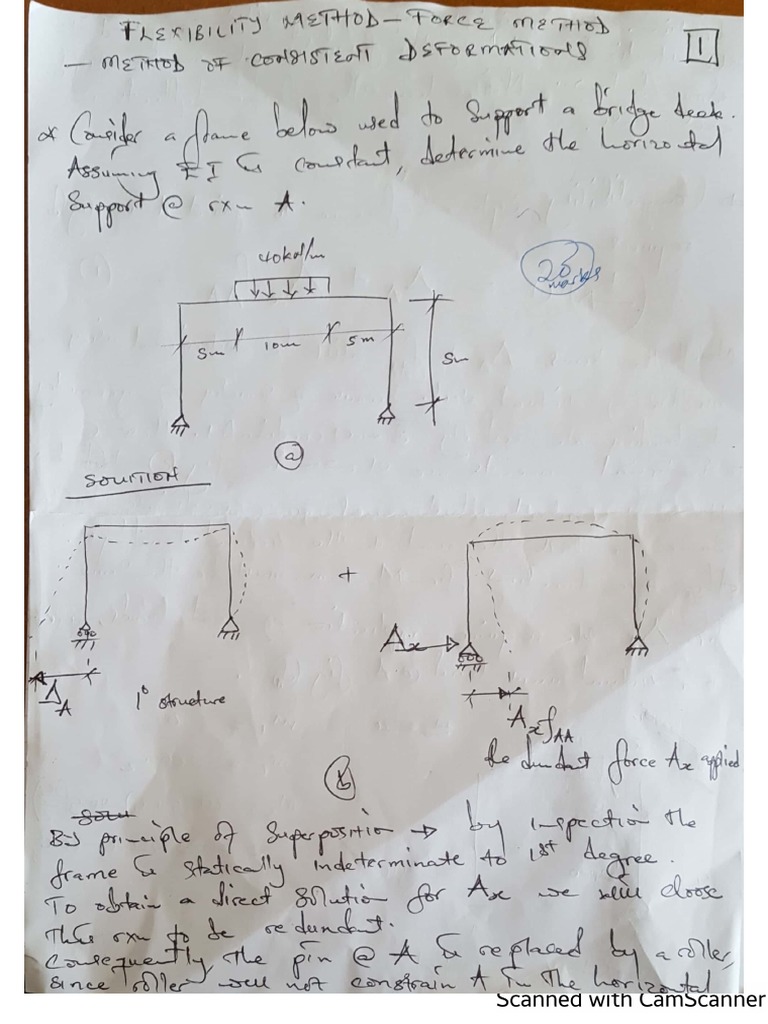 FLEXIBILITY METHOD – FORCE METHOD
– METHOD OF CONSISTENT DEFORMATIONS
1
* Consider a frame below used to support a bridge deck.
Assuming EI is constant, determine the horizontal
Support @ rxn A.
20 marks
40kN/m
5m 10m 5m
5m
(a)
SOLUTION
+
Ax
ΔA
1° structure
AxfAA
Redundant force Ax applied
(b)
By principle of Superposition → by inspection the
frame is statically indeterminate to 1st degree.
To obtain a direct solution for Ax we will choose
this rxn to be redundant.
Consequently, the pin @ A is replaced by a roller,
since roller will not constrain A in the horizontal
Scanned with CamScanner